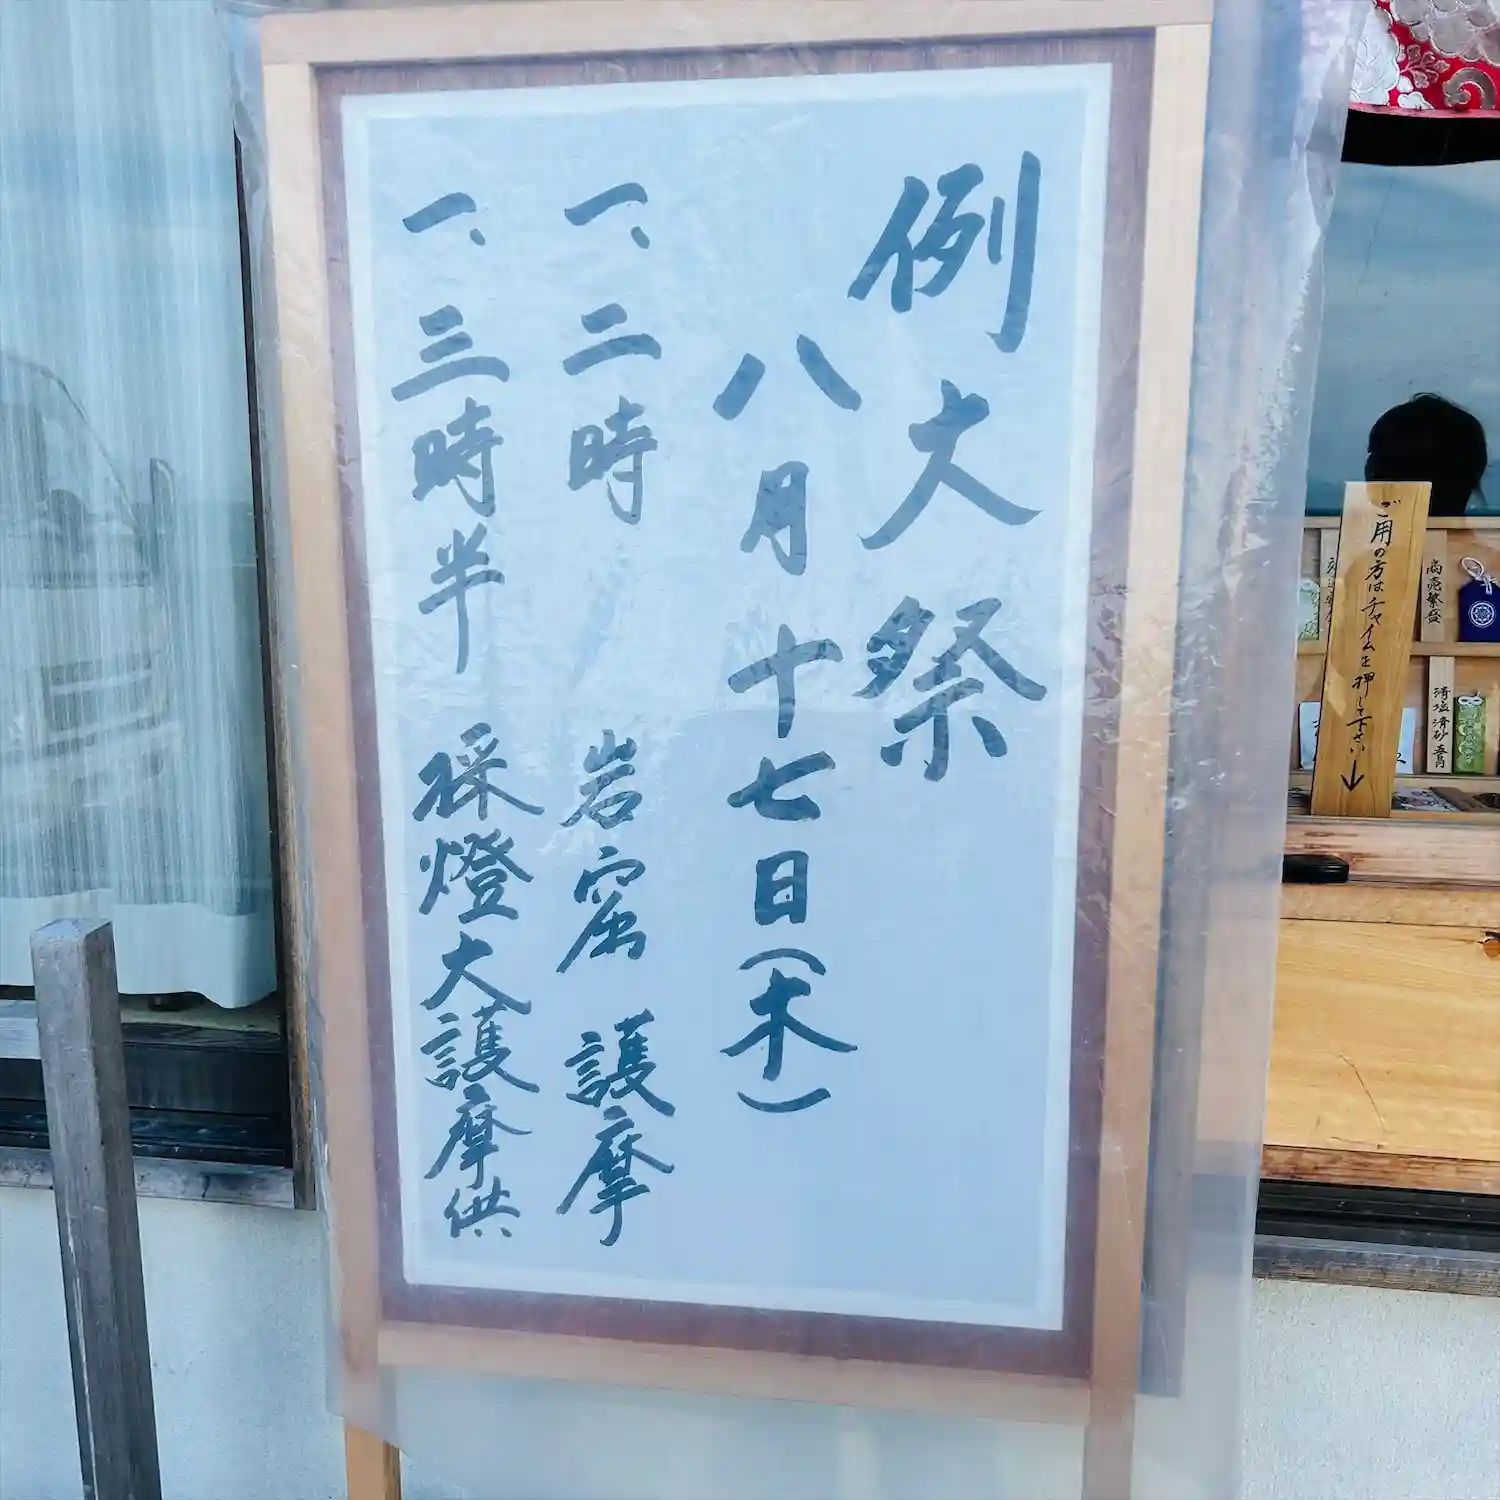 例大祭
八月十七日(木)
一、二時 岩窟 護摩
一、三時半 採燈大護摩供
ご用の方はチャイムを押して下さい↓
商売繁盛
清塩清砂